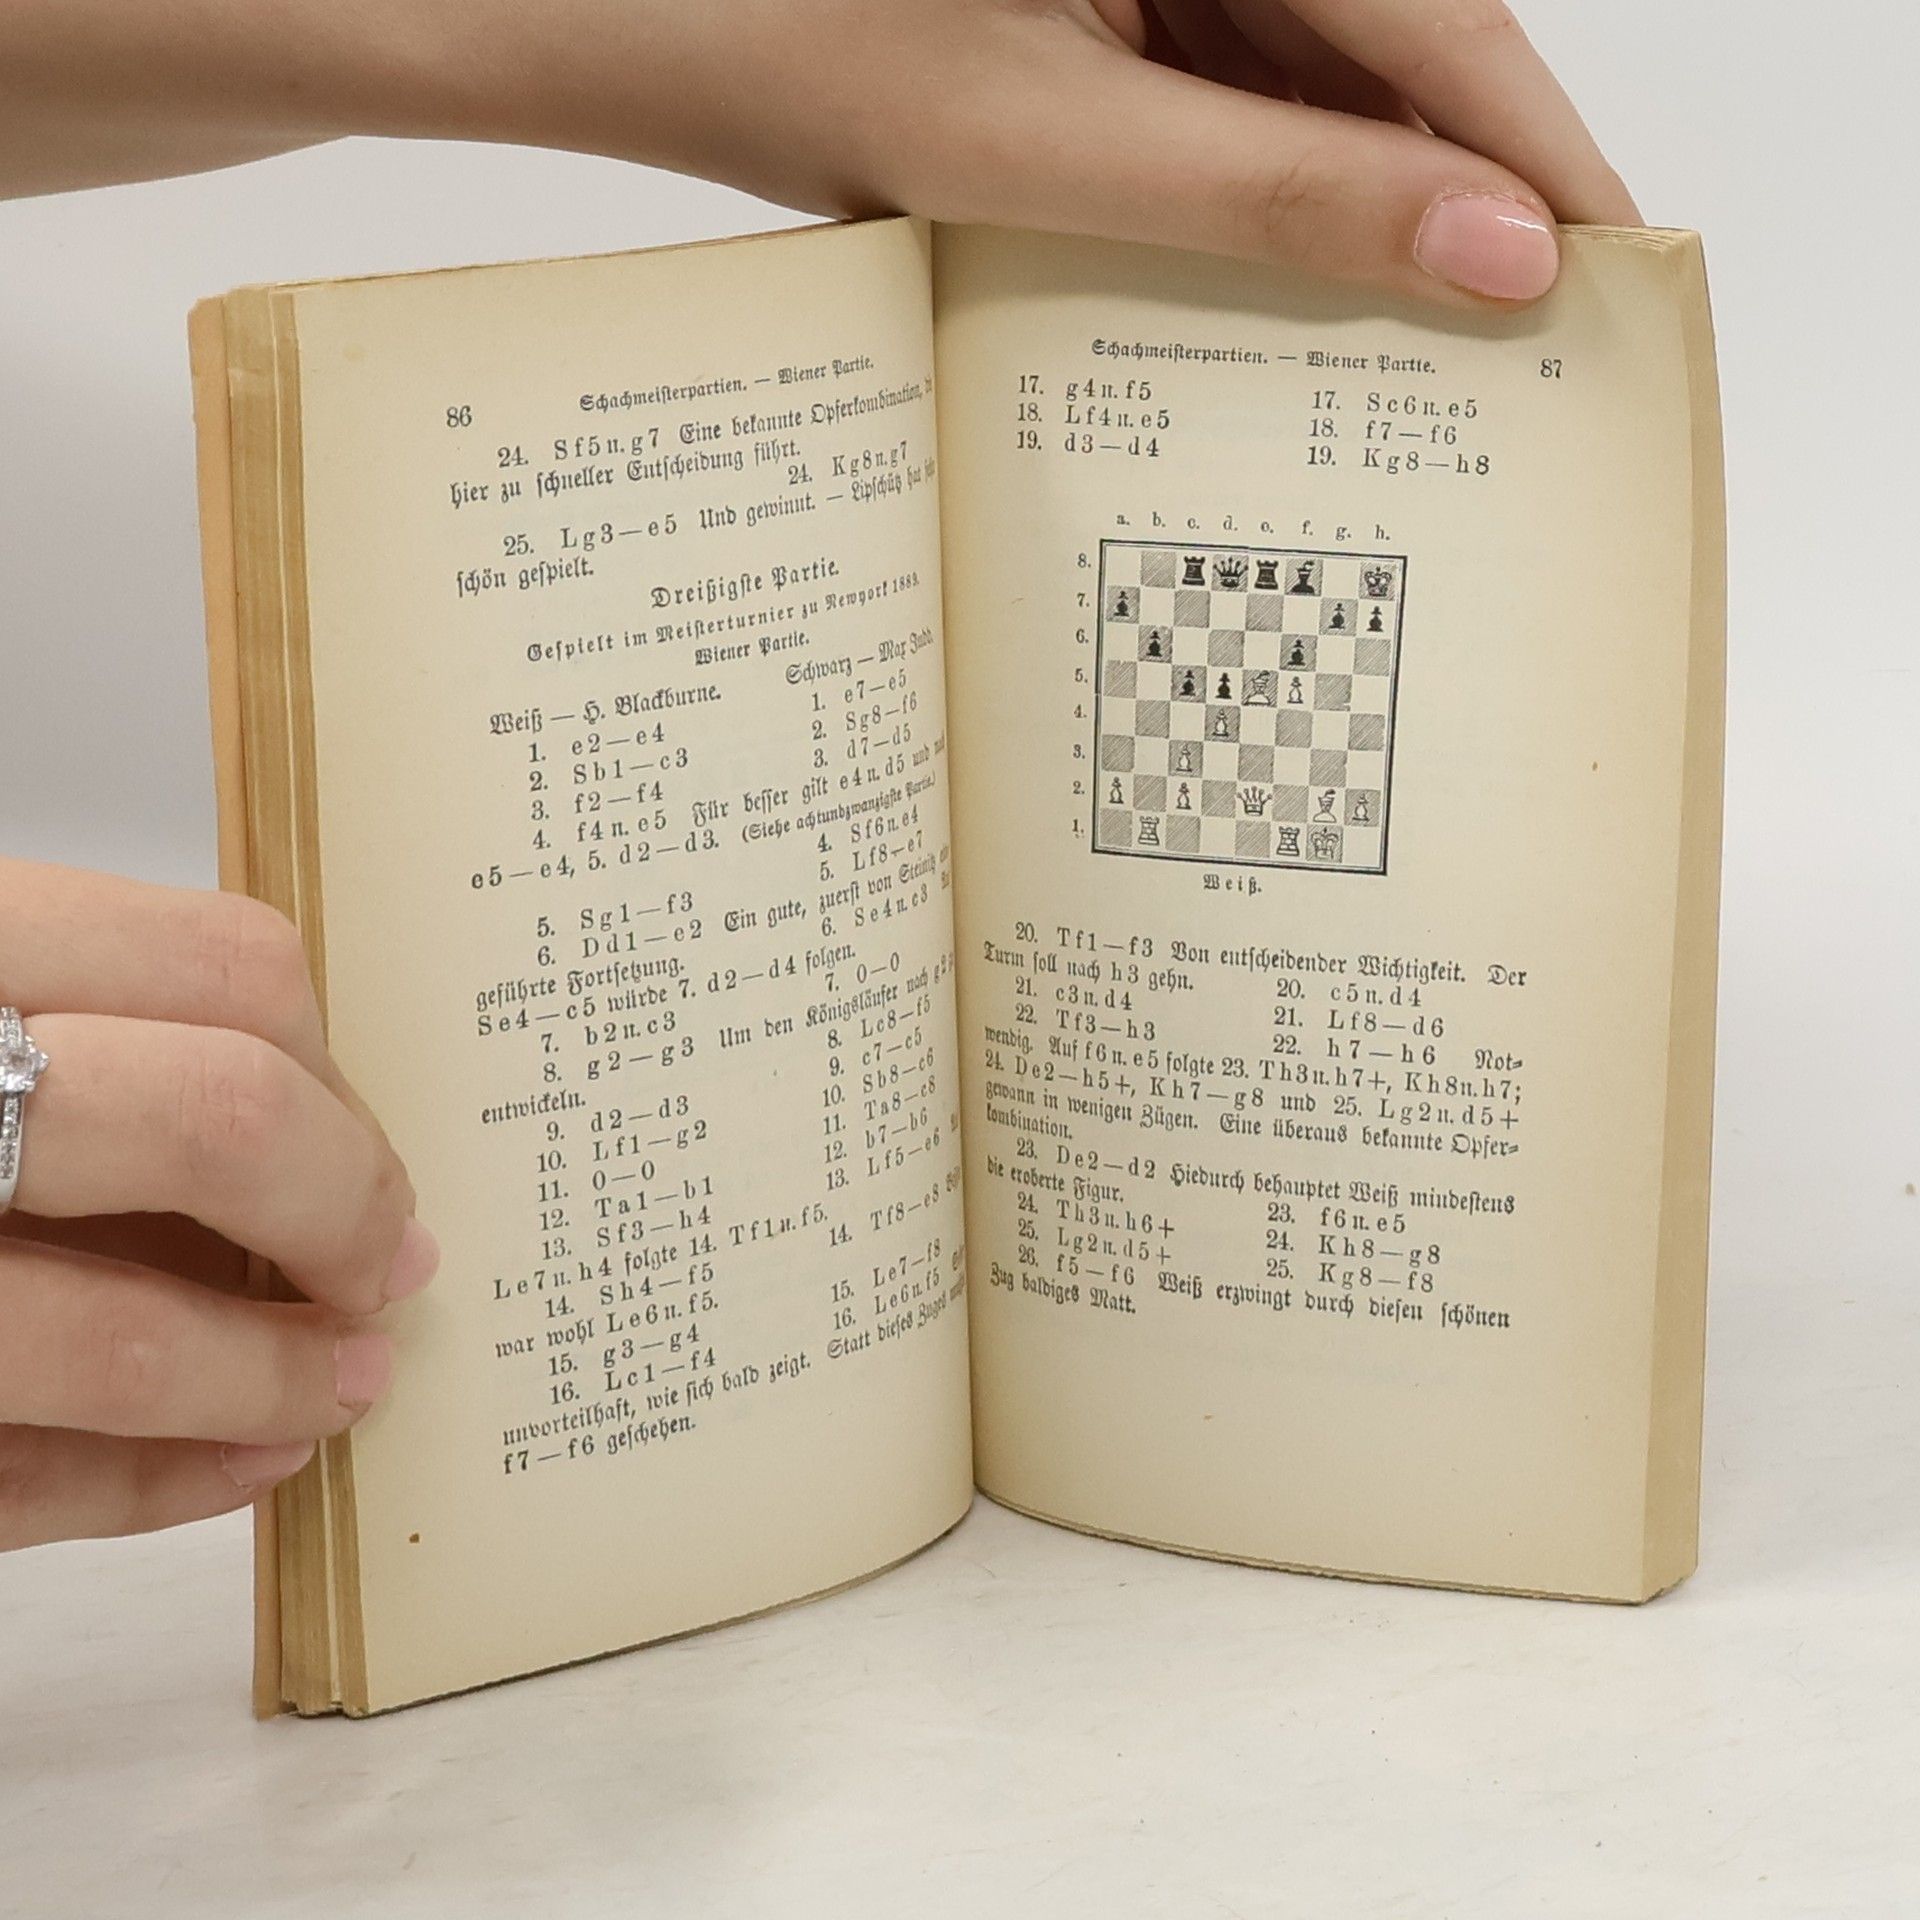 86
Schachmeisterpartien. — Wiener Partie.
24. Sf5n.g7 Eine bekannte Opferkombination,
hier zu schneller Entscheidung führt.
24. Kg8n.g7
25. Lg3—e5 Und gewinnt. — Lipschütz hat
schön gespielt.
Dreißigste Partie.
Gespielt im Meisterturnier zu Newyork 1889.
Wiener Partie.
Weiß — H. Blackburne. Schwarz — Max Judd.
1. e2—e4 1. e7—e5
2. Sb1—c3 2. Sg8—f6
3. f2—f4 3. d7—d5
4. f4n.e5 Für besser gilt e4n.d5 und
e5—e4, 5. d2—d3. (Siehe achtundzwanzigste Partie.)
4. Sf6n.e4
5. Sg1—f3 5. Lf8—e7
6. Dd1—e2 Ein gute, zuerst von Steinitz
geführte Fortsetzung. 6. Se4n.c3
Se4—c5 würde 7. d2—d4 folgen.
7. b2n.c3 7. 0—0
8. g2—g3 Um den Königsläufer nach g2
entwickeln. 8. Lc8—f5
9. d2—d3 9. c7—c5
10. Lf1—g2 10. Sb8—c6
11. 0—0 11. Ta8—c8
12. Ta1—b1 12. b7—b6
13. Sf3—h4 13. Lf5—e6
Le7n.h4 folgte 14. Tf1n.f5.
14. Sh4—f5 14. Tf8—e8
war wohl Le6n.f5.
15. g3—g4 15. Le7—f8
16. Lc1—f4 16. Le6n.f5
unvorteilhaft, wie sich bald zeigt. Statt dieses Zuges
f7—f6 geschehen.
Schachmeisterpartien. — Wiener Partie. 87
17. g4n.f5 17. Sc6n.e5
18. Lf4n.e5 18. f7—f6
19. d3—d4 19. Kg8—h8
a. b. c. d. e. f. g. h.
8.
7.
6.
5.
4.
3.
2.
1.
Weiß.
20. Tf1—f3 Von entscheidender Wichtigkeit. Der
Turm soll nach h3 gehn. 20. c5n.d4
21. c3n.d4 21. Lf8—d6
22. Tf3—h3 22. h7—h6 Not-
wendig. Auf f6n.e5 folgte 23. Th3n.h7+, Kh8n.h7;
24. De2—h5+, Kh7—g8 und 25. Lg2n.d5+
gewann in wenigen Zügen. Eine überaus bekannte Opfer-
kombination.
23. De2—d2 Hiedurch behauptet Weiß mindestens
die eroberte Figur. 23. f6n.e5
24. Th3n.h6+ 24. Kh8—g8
25. Lg2n.d5+ 25. Kg8—f8
26. f5—f6 Weiß erzwingt durch diesen schönen
Zug baldiges Matt.